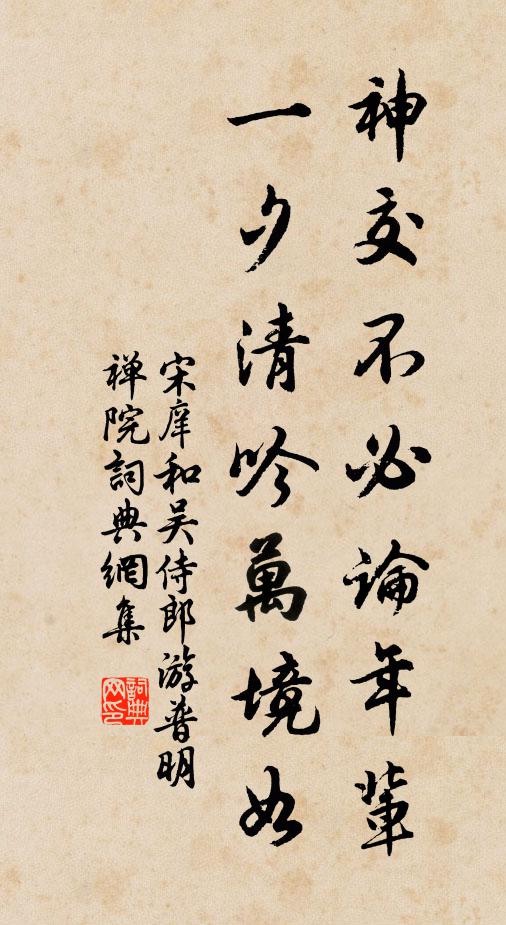 神交不必論年輩
一夕清吟萬境如
宋庠和吴侍郎游普明
禅院詞典網集
詞典
网印